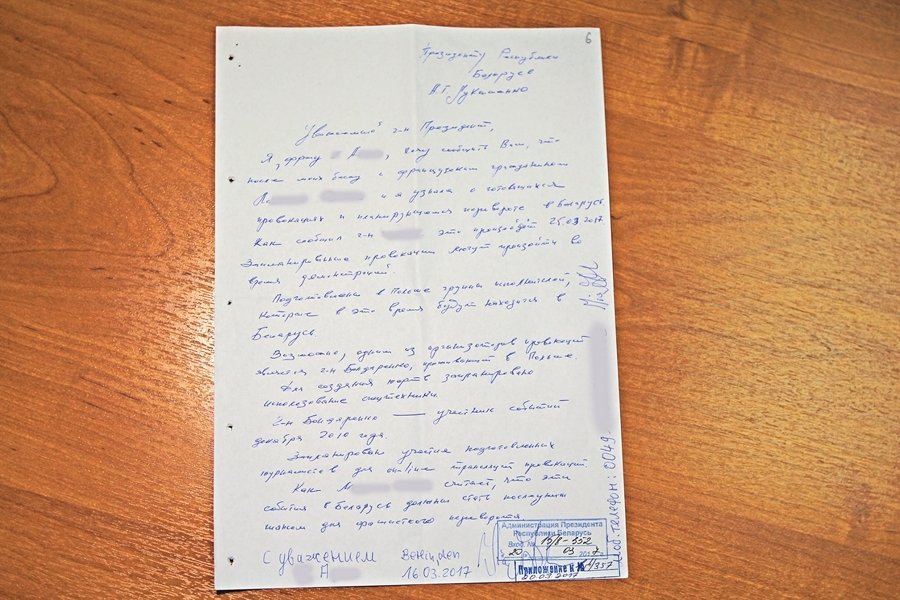 6
Президенту Республики
Беларусь
А.Г. Лукашенко
Уважаемый г-н Президент,
Я, фрау А , хочу сообщить Вам, что
после моих бесед с французским гражданином
и я узнала о готовящихся
провокациях и планирующемся перевороте в Беларусь.
Как сообщил г-н это произойдёт 25.03.2017.
Запланированные провокации могут произойти во
время демонстраций.
Подготовлены в Польше группы исполнителей,
которые в это время будут находится в
Беларусь.
Возможно, одним из организаторов провокаций
является г-н Бондаренко, проживающий в Польше.
Для создания жертв запланировано
использование спецтехники.
г-н Бондаренко — участник событий
декабря 2010 года.
Запланирован участие подготовленных
журналистов для on-line трансляций провокаций
Как М считает, что эти
события в Беларусь должны стать последним
шансом для фашистского переворота
С уважением
А
16.03.2017
Администрация Президента
Республики Беларусь
Вход. № 19/8-352
20 03 2017 г.
Приложение к №
20.03.2017
моб. телефон: 0049